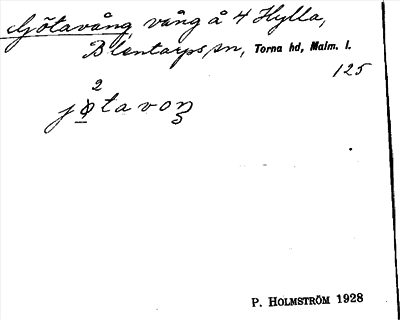 Gjötavång, vång å 4 Hylla,
Blentarps sn, Torna hd, Malm. l.
125
2
jøtavoŋ
P. HOLMSTRÖM 1928